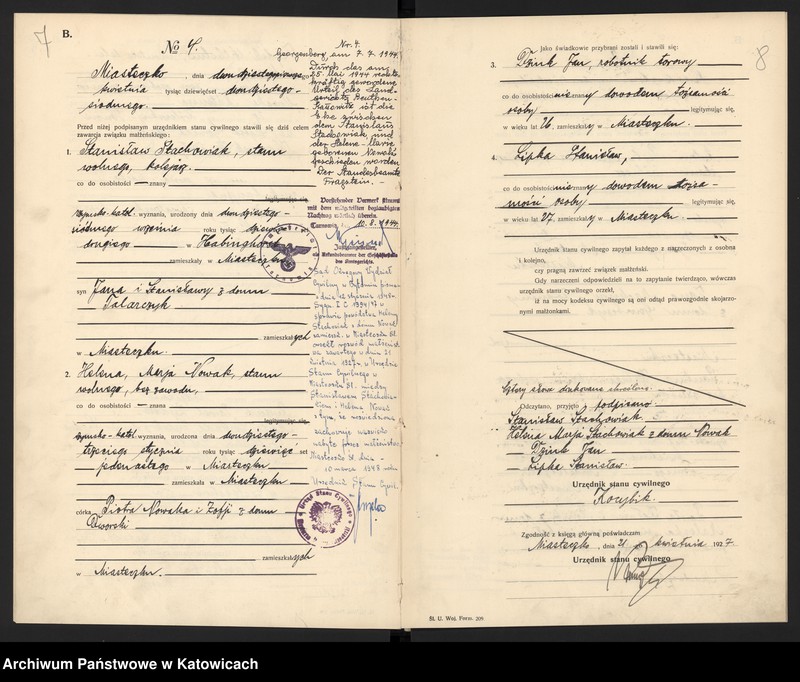 7
B.
No 4.
Miasteczko, dnia dwudziestego pierwszego
kwietnia tysiąc dziewięćset dwudziestego
siódmego.
Przed niżej podpisanym urzędnikiem stanu cywilnego stawili się dziś celem
zawarcia związku małżeńskiego:
1. Stanisław Stachowiak, stanu
wolnego, kolejarz.
co do osobistości — znany
legitymując się,
rzymsko-katol. wyznania, urodzony dnia dwudziestego
siódmego września roku tysiąc dziewięćset
drugiego w Habinghorst
zamieszkały w Miasteczku
syn Jana i Stanisławy z domu
Talarczyk
zamieszkałych
w Miasteczku.
2. Helena, Marja Nowak, stanu
wolnego, bez zawodu,
co do osobistości — znana
legitymując się,
rzymsko-katol. wyznania, urodzona dnia dwudziestego
trzeciego stycznia roku tysiąc dziewięć set
jedenastego w Miasteczku
zamieszkała w Miasteczku
córka Piotra Nowaka i Zofji z domu
Dworski
zamieszkałych
w Miasteczku.
Nr. 4.
Georgenberg, am 7. 7. 1944.
Durch das am
25. Mai 1944 rechts-
kräftig gewordene
Urteil des Land-
gerichts Beuthen-
Kattowitz ist die
Ehe zwischen
dem Stanislaus
Stachowiak und
der Helene Marie
geborenen Nowak
geschieden worden
Der Standesbeamte
Fragstein.
Vorstehender Vermerk stimmt
mit dem mitgeteilten beglaubigten
Nachtrag wörtlich überein.
Tarnowitz, den 10. 8. 1944
Justizangestellter,
als Urkundsbeamter der Geschäftsstelle
des Amtsgerichts.
Sąd Okręgowy Wydział
Cywilny w Bytomiu
z dnia 12 stycznia 1948
Sygn. I C 1394/47 w
sprawie powództwa Heleny
Stachowiak z domu Nowak
zamieszk. w Miasteczku Śl.
zawartego w dnia 21
kwietnia 1927 r. w Urzędzie
Stanu Cywilnego w
Miasteczku Śl. między
Stanisławem Stachowia-
kiem i Heleną Nowak
Miasteczko Śl. dnia
10 marca 1948 roku
Urzędnik Stanu Cywil.
8
Jako świadkowie przybrani zostali i stawili się:
3. Dzink Jan, robotnik torowy
co do osobistości nieznany dowodem tożsamości
osoby legitymując się,
w wieku lat 26. zamieszkały w Miasteczku.
4. Lipka Stanisław,
co do osobistości nieznany dowodem tożsa-
mości osoby legitymując się,
w wieku lat 27. zamieszkały w Miasteczku.
Urzędnik stanu cywilnego zapytał każdego z narzeczonych z osobna
i kolejno,
czy pragną zawrzeć związek małżeński.
Gdy narzeczeni odpowiedzieli na to zapytanie twierdząco, wówczas
urzędnik stanu cywilnego orzekł,
iż na mocy kodeksu cywilnego są oni odtąd prawozgodnie skojarzo-
nymi małżonkami.
Cztery słowa drukowane skreślono.
Odczytano, przyjęto i podpisano
Stanisław Stachowiak
Helena Marja Stachowiak z domu Nowak
Dzink Jan
Lipka Stanisław.
Urzędnik stanu cywilnego
Kocybik.
Zgodność z księgą główną poświadczam
Miasteczko, dnia 21 kwietnia 1927
Urzędnik stanu cywilnego
Śl. U. Woj. Form. 209.
Archiwum Państwowe w Katowicach